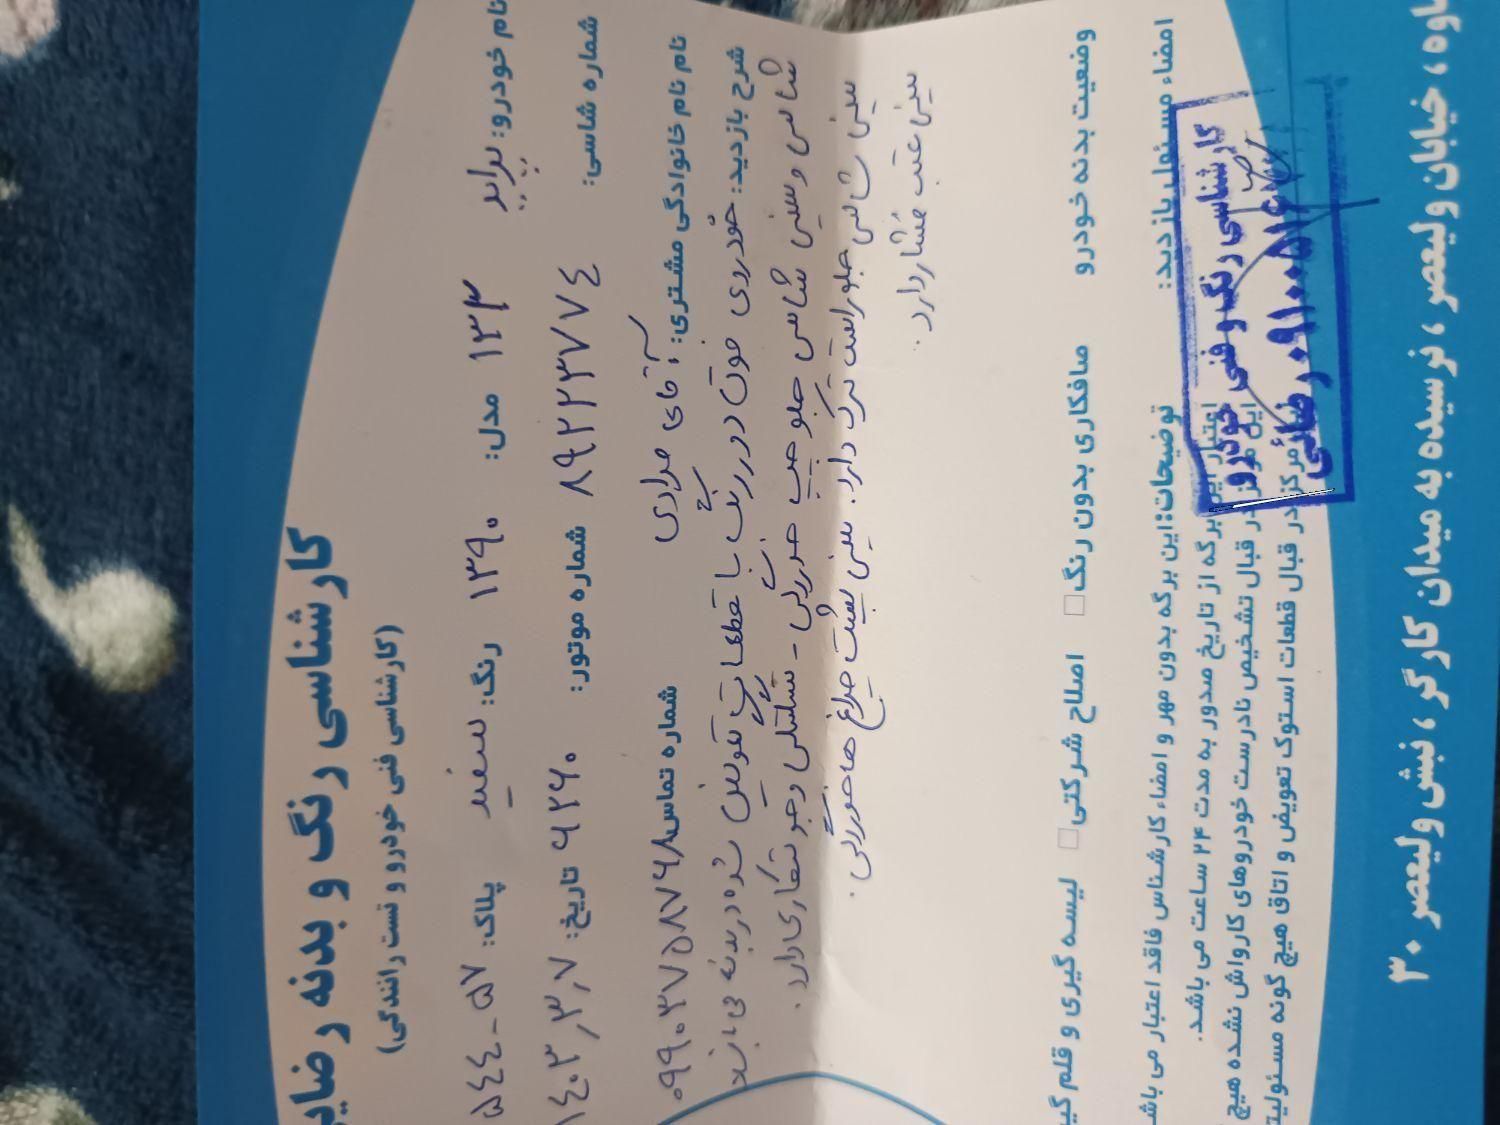 کارشناسی رنگ و بدنه رضای
(کارشناسی فنی خودرو و تست رانندگی)
نام خودرو: پراید ۱۳۲ مدل: ۱۳۹۰ رنگ: سفید پلاک: ۵۷-۵۴۴
شماره شاسی: شماره موتور: ۸۹۲۲۳۷۷۴ تاریخ: ۱۴۰۳,۳,۷
نام نام خانوادگی مشتری: آقای مرادی شماره تماس: ۰۹۹۰۳۷۵۸۷۶۸
شرح بازدید: خودروی فوق دور رنگ با قطعات تعویض شده در بدنه می باشد
شاسی و سینی شاسی جلو چپ خوردگی - تسلیکی و جوشکاری دارد.
سینی شاسی جلو راست ترک دارد. سینی پشت چراغ ها خوردگی.
سینی عقب فشار دارد.
وضعیت بدنه خودرو صافکاری بدون رنگ □ اصلاح شرکتی □ لیسه گیری و قلم گی
امضاء مسئول بازدید: توضیحات: این برگه بدون مهر و امضاء کارشناس فاقد اعتبار می باش
اعتبار این برگه از تاریخ صدور به مدت ۲۴ ساعت می باشد.
این مرکز در قبال تشخیص نادرست خودروهای کارواش نشده هیچ
مرکز در قبال قطعات استوک تعویض و اتاق هیچ گونه مسئولیت
کارشناسی رنگ و فنی خودرو
رضائی
اوه ، خیابان ولیعصر ، نرسیده به میدان کارگر ، نبش ولیعصر ۳۰